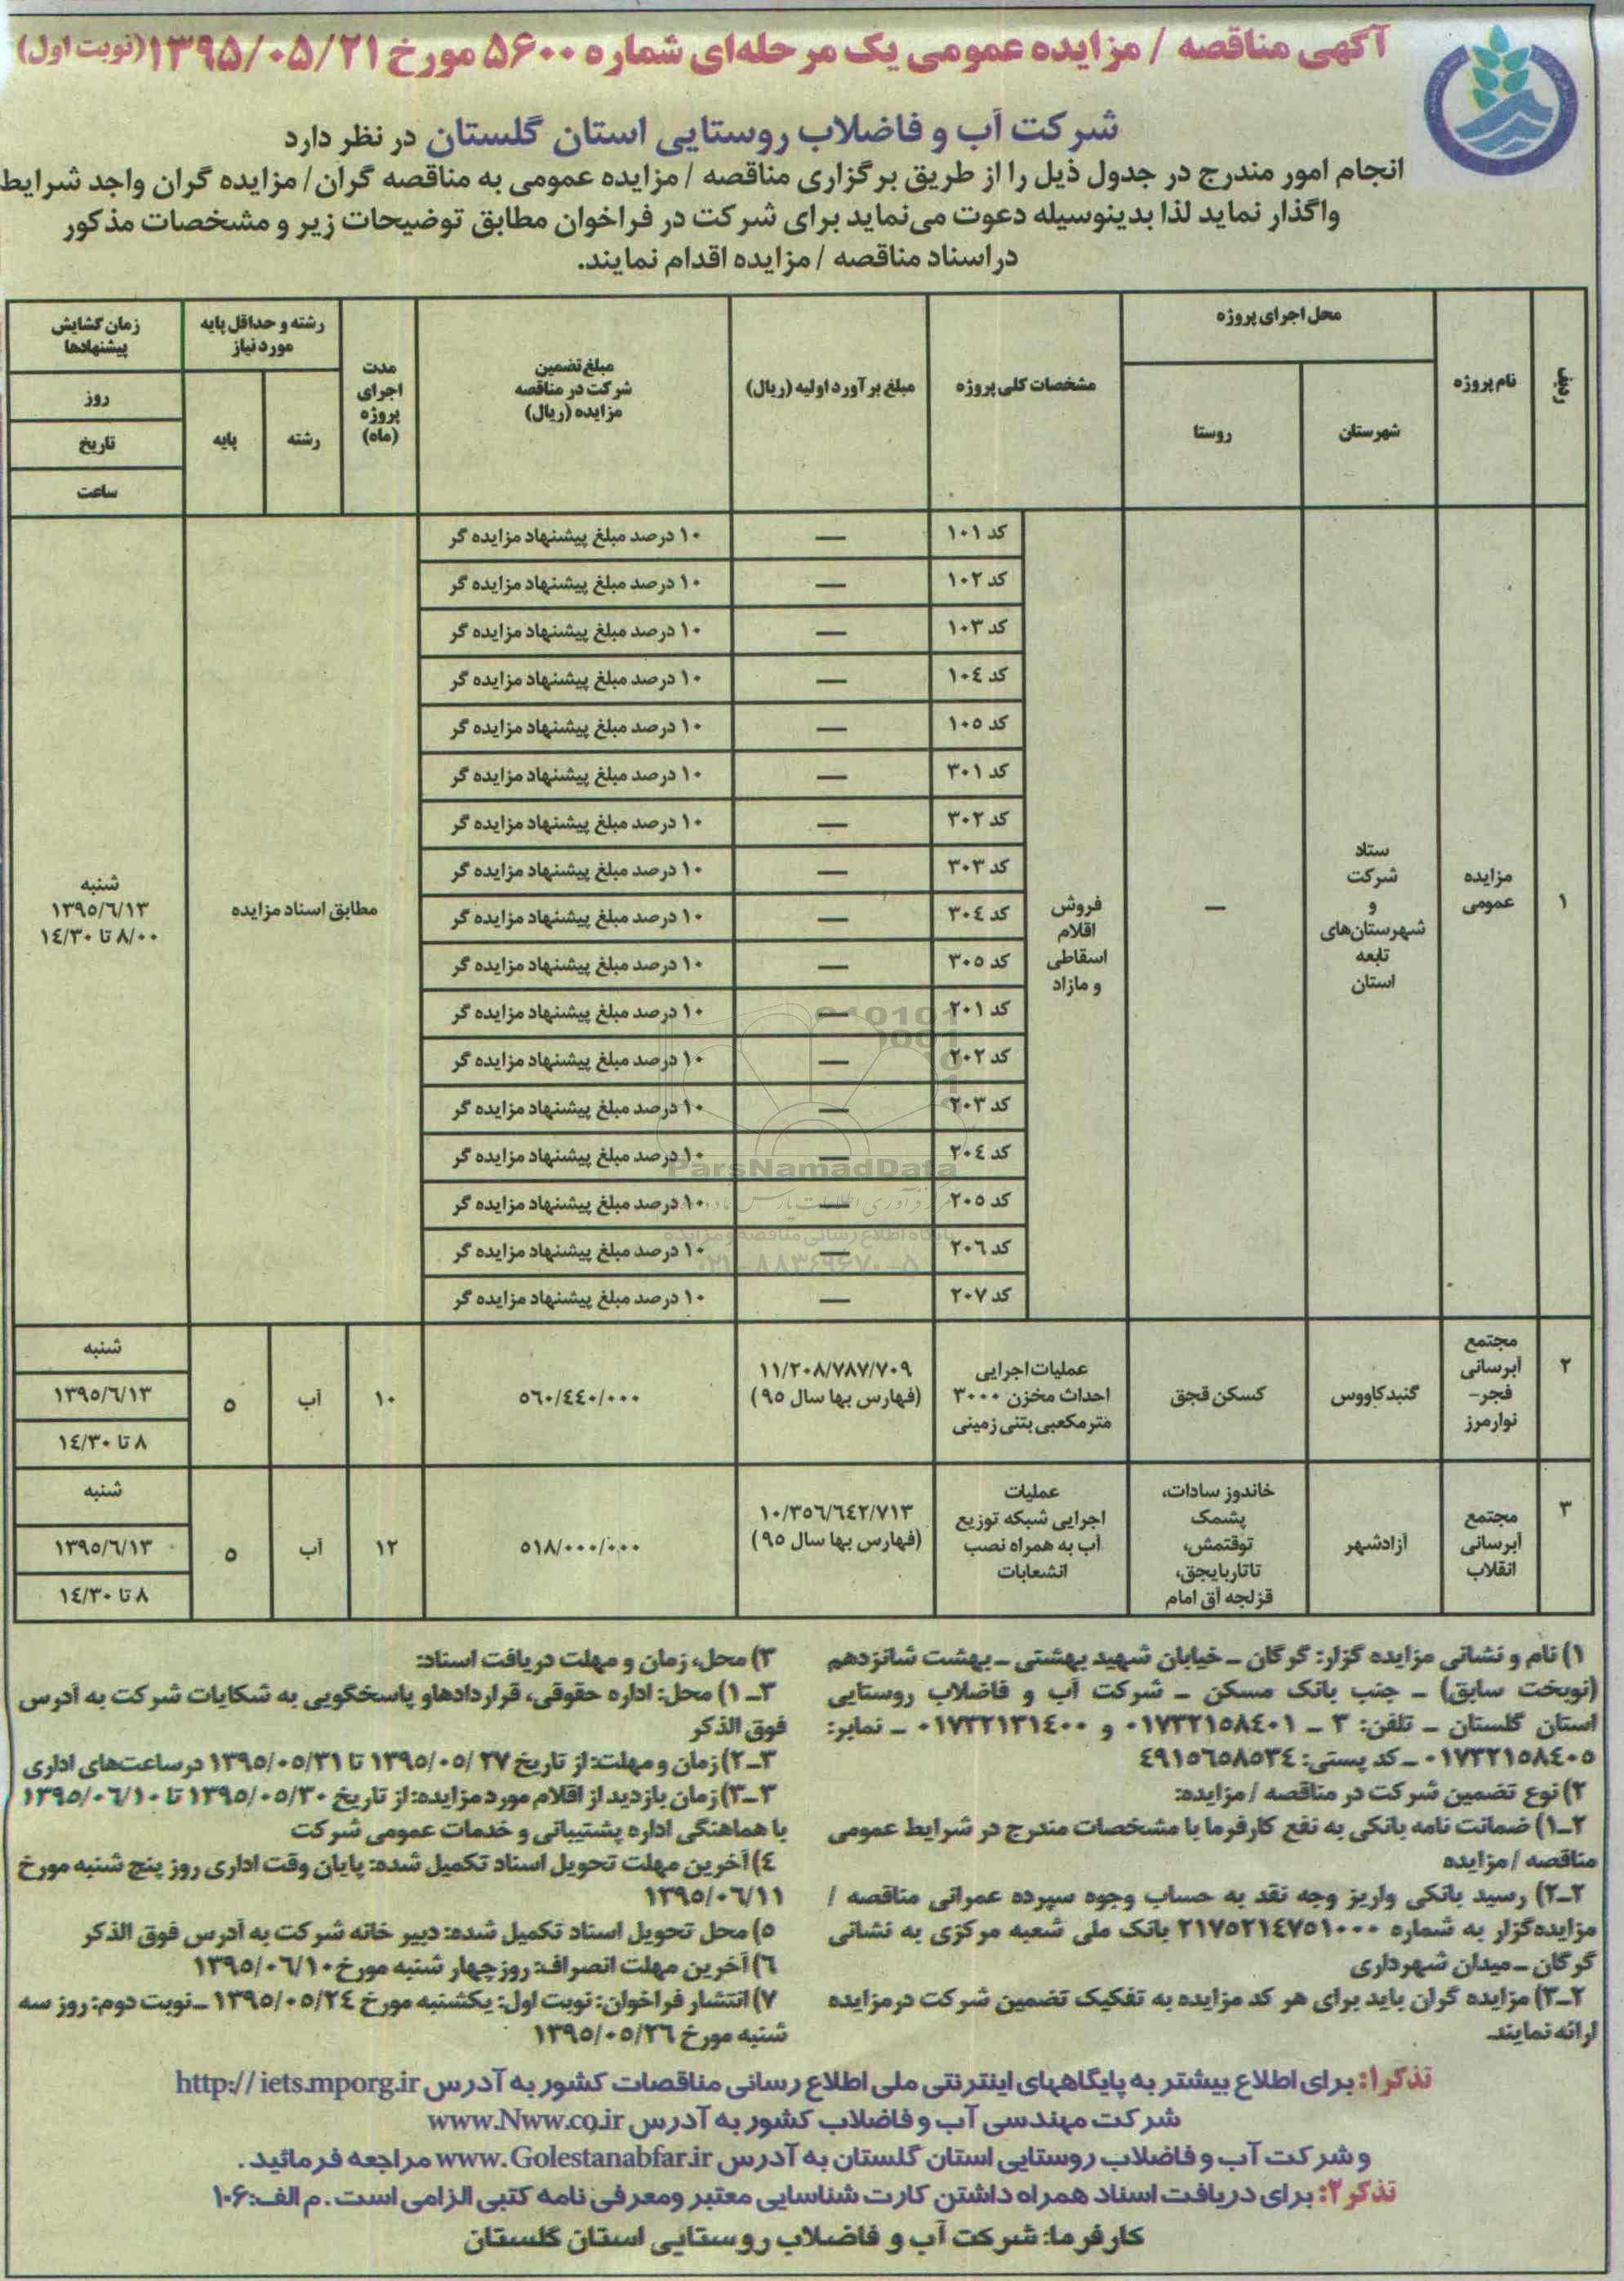 آگهی مناقصه / مزایده عمومی یک مرحله‌ای شماره ۵۶۰۰ مورخ ۱۳۹۵/۰۵/۲۱ (نوبت اول)
شرکت آب و فاضلاب روستایی استان گلستان در نظر دارد
انجام امور مندرج در جدول ذیل را از طریق برگزاری مناقصه / مزایده عمومی به مناقصه گران/ مزایده گران واجد شرایط
واگذار نماید لذا بدینوسیله دعوت می‌نماید برای شرکت در فراخوان مطابق توضیحات زیر و مشخصات مذکور
دراسناد مناقصه / مزایده اقدام نمایند.
ردیف
نام پروژه
محل اجرای پروژه
شهرستان
روستا
مشخصات کلی پروژه
مبلغ برآورد اولیه (ریال)
مبلغ تضمین
شرکت در مناقصه
مزایده (ریال)
مدت
اجرای
پروژه
(ماه)
رشته و حداقل پایه
مورد نیاز
رشته
پایه
زمان گشایش
پیشنهادها
روز
تاریخ
ساعت
۱
مزایده
عمومی
ستاد
شرکت
و
شهرستان‌های
تابعه
استان
—
فروش
اقلام
اسقاطی
و مازاد
کد ۱۰۱ — ۱۰ درصد مبلغ پیشنهاد مزایده گر
کد ۱۰۲ — ۱۰ درصد مبلغ پیشنهاد مزایده گر
کد ۱۰۳ — ۱۰ درصد مبلغ پیشنهاد مزایده گر
کد ۱۰۴ — ۱۰ درصد مبلغ پیشنهاد مزایده گر
کد ۱۰۵ — ۱۰ درصد مبلغ پیشنهاد مزایده گر
کد ۳۰۱ — ۱۰ درصد مبلغ پیشنهاد مزایده گر
کد ۳۰۲ — ۱۰ درصد مبلغ پیشنهاد مزایده گر
کد ۳۰۳ — ۱۰ درصد مبلغ پیشنهاد مزایده گر
کد ۳۰۴ — ۱۰ درصد مبلغ پیشنهاد مزایده گر
کد ۳۰۵ — ۱۰ درصد مبلغ پیشنهاد مزایده گر
کد ۲۰۱ — ۱۰ درصد مبلغ پیشنهاد مزایده گر
کد ۲۰۲ — ۱۰ درصد مبلغ پیشنهاد مزایده گر
کد ۲۰۳ — ۱۰ درصد مبلغ پیشنهاد مزایده گر
کد ۲۰۴ — ۱۰ درصد مبلغ پیشنهاد مزایده گر
کد ۲۰۵ — ۱۰ درصد مبلغ پیشنهاد مزایده گر
کد ۲۰۶ — ۱۰ درصد مبلغ پیشنهاد مزایده گر
کد ۲۰۷ — ۱۰ درصد مبلغ پیشنهاد مزایده گر
مطابق اسناد مزایده
شنبه
۱۳۹۵/۶/۱۳
۸/۰۰ تا ۱۴/۳۰
ParsNamadData
پایگاه اطلاع رسانی مناقصه و مزایده
۰۲۱-۸۸۳۴۹۶۷۰-۵
۲
مجتمع
آبرسانی
فجر-
نوارمرز
گنبدکاووس
کسکن قجق
عملیات اجرایی
احداث مخزن ۳۰۰۰
مترمکعبی بتنی زمینی
۱۱/۲۰۸/۷۸۷/۷۰۹
(فهارس بها سال ۹۵)
۵۶۰/۴۴۰/۰۰۰
۱۰
آب
۵
شنبه
۱۳۹۵/۶/۱۳
۸ تا ۱۴/۳۰
۳
مجتمع
آبرسانی
انقلاب
آزادشهر
خاندوز سادات،
پشمک
توقتمش،
تاتاربایجق،
قزلجه آق امام
عملیات
اجرایی شبکه توزیع
آب به همراه نصب
انشعابات
۱۰/۳۵۶/۶۴۲/۷۱۳
(فهارس بها سال ۹۵)
۵۱۸/۰۰۰/۰۰۰
۱۲
آب
۵
شنبه
۱۳۹۵/۶/۱۳
۸ تا ۱۴/۳۰
۱) نام و نشانی مزایده گزار: گرگان – خیابان شهید بهشتی – بهشت شانزدهم
(نوبخت سابق) – جنب بانک مسکن – شرکت آب و فاضلاب روستایی
استان گلستان – تلفن: ۳ – ۰۱۷۳۲۱۵۸۴۰۱ و ۰۱۷۳۲۱۳۱۴۰۰ – نمابر:
۰۱۷۳۲۱۵۸۴۰۵ – کد پستی: ۴۹۱۵۶۵۸۵۳۴
۲) نوع تضمین شرکت در مناقصه / مزایده:
۲–۱) ضمانت نامه بانکی به نفع کارفرما با مشخصات مندرج در شرایط عمومی
مناقصه / مزایده
۲–۲) رسید بانکی واریز وجه نقد به حساب وجوه سپرده عمرانی مناقصه /
مزایده‌گزار به شماره ۲۱۷۵۲۱۴۷۵۱۰۰۰ بانک ملی شعبه مرکزی به نشانی
گرگان – میدان شهرداری
۲–۳) مزایده گران باید برای هر کد مزایده به تفکیک تضمین شرکت در مزایده
ارائه نمایند.
۳) محل، زمان و مهلت دریافت اسناد:
۳–۱) محل: اداره حقوقی، قراردادها و پاسخگویی به شکایات شرکت به آدرس
فوق الذکر
۳–۲) زمان و مهلت: از تاریخ ۱۳۹۵/۰۵/۲۷ تا ۱۳۹۵/۰۵/۳۱ در ساعت‌های اداری
۳–۳) زمان بازدید از اقلام مورد مزایده: از تاریخ ۱۳۹۵/۰۵/۳۰ تا ۱۳۹۵/۰۶/۱۰
با هماهنگی اداره پشتیبانی و خدمات عمومی شرکت
۴) آخرین مهلت تحویل اسناد تکمیل شده: پایان وقت اداری روز پنج شنبه مورخ
۱۳۹۵/۰۶/۱۱
۵) محل تحویل اسناد تکمیل شده: دبیر خانه شرکت به آدرس فوق الذکر
۶) آخرین مهلت انصراف: روز چهار شنبه مورخ ۱۳۹۵/۰۶/۱۰
۷) انتشار فراخوان: نوبت اول: یکشنبه مورخ ۱۳۹۵/۰۵/۲۴ – نوبت دوم: روز سه
شنبه مورخ ۱۳۹۵/۰۵/۲۶
تذکر۱: برای اطلاع بیشتر به پایگاههای اینترنتی ملی اطلاع رسانی مناقصات کشور به آدرس http://iets.mporg.ir
شرکت مهندسی آب و فاضلاب کشور به آدرس www.Nww.co.ir
و شرکت آب و فاضلاب روستایی استان گلستان به آدرس www.Golestanabfar.ir مراجعه فرمائید.
تذکر۲: برای دریافت اسناد همراه داشتن کارت شناسایی معتبر ومعرفی نامه کتبی الزامی است. م الف: ۱۰۶
کارفرما: شرکت آب و فاضلاب روستایی استان گلستان